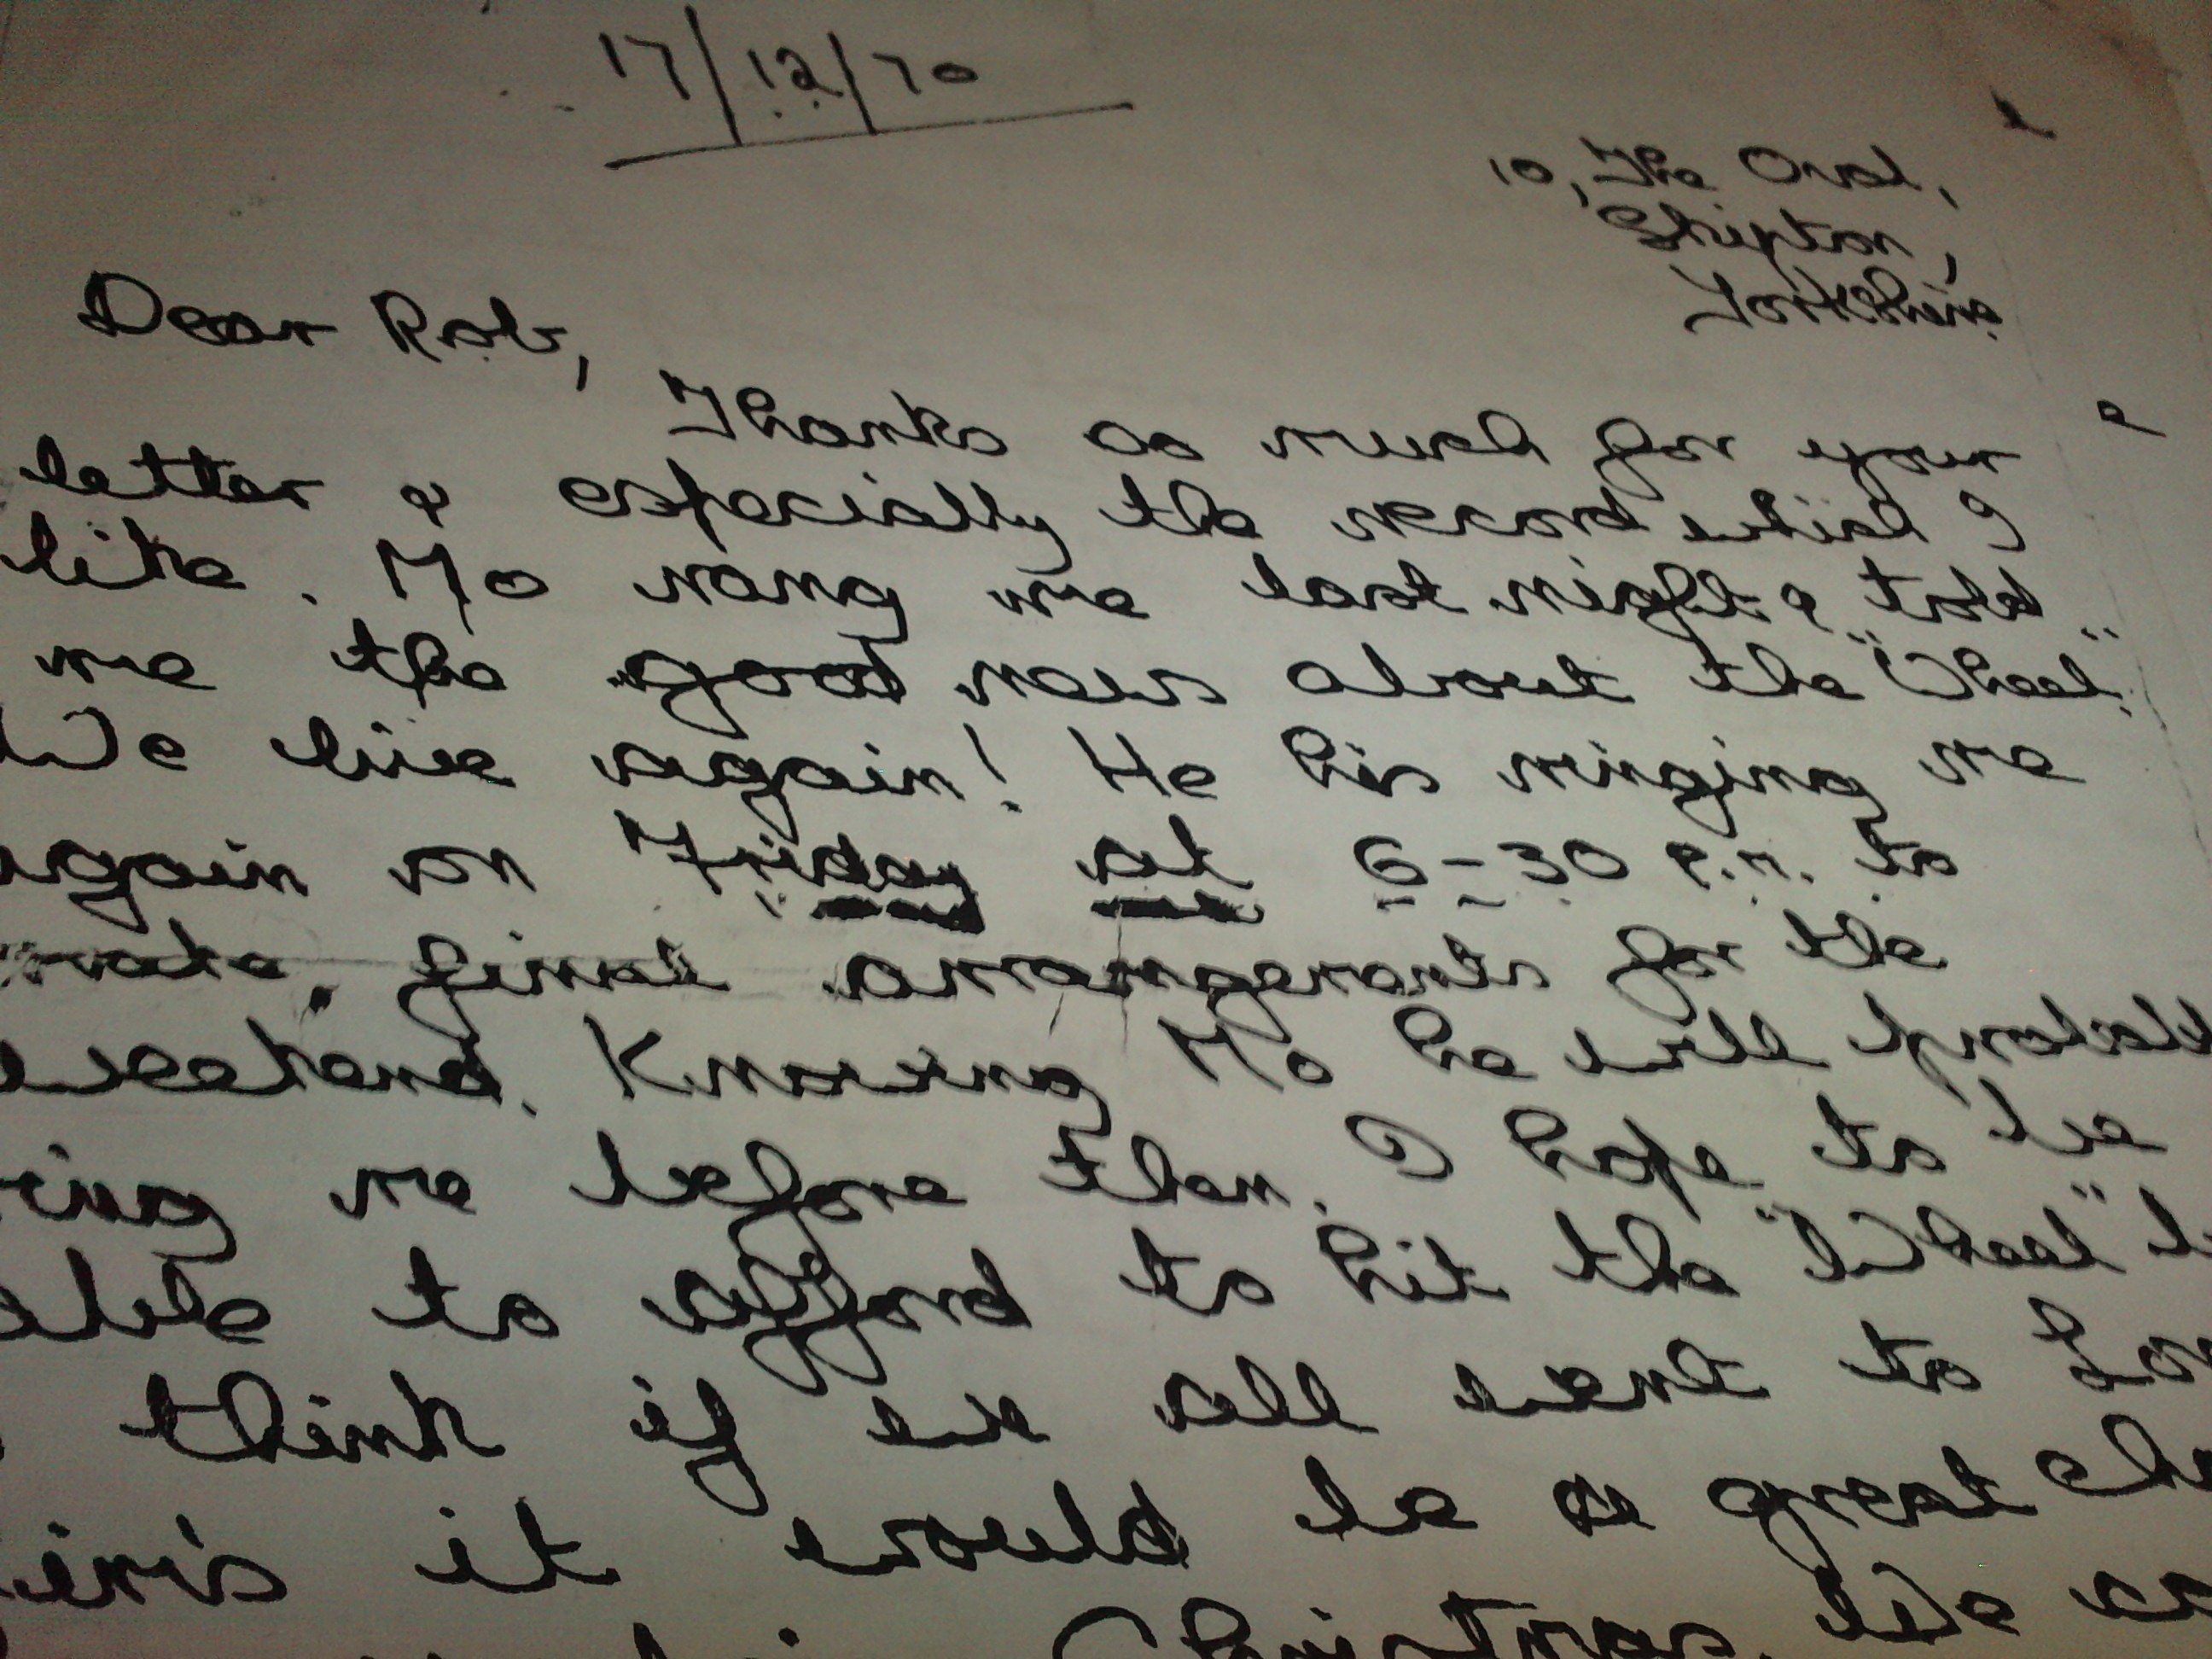 17/12/70
10, The Oval,
Shipton,
Yorkshire
Dear Rob,
Thanks so much for your
letter & especially the record which I
like. Mo rang me last night & told
me the good news about the "Wheel".
We live again! He his ringing me
again on Friday at 6-30 P.M. to
make final arrangements for the
weekend. Knowing Mo he will probabl
ring me before then. I hope to be
able to afford to hit the "Wheel"
think if we all went to
it would be a great
Christmas. We